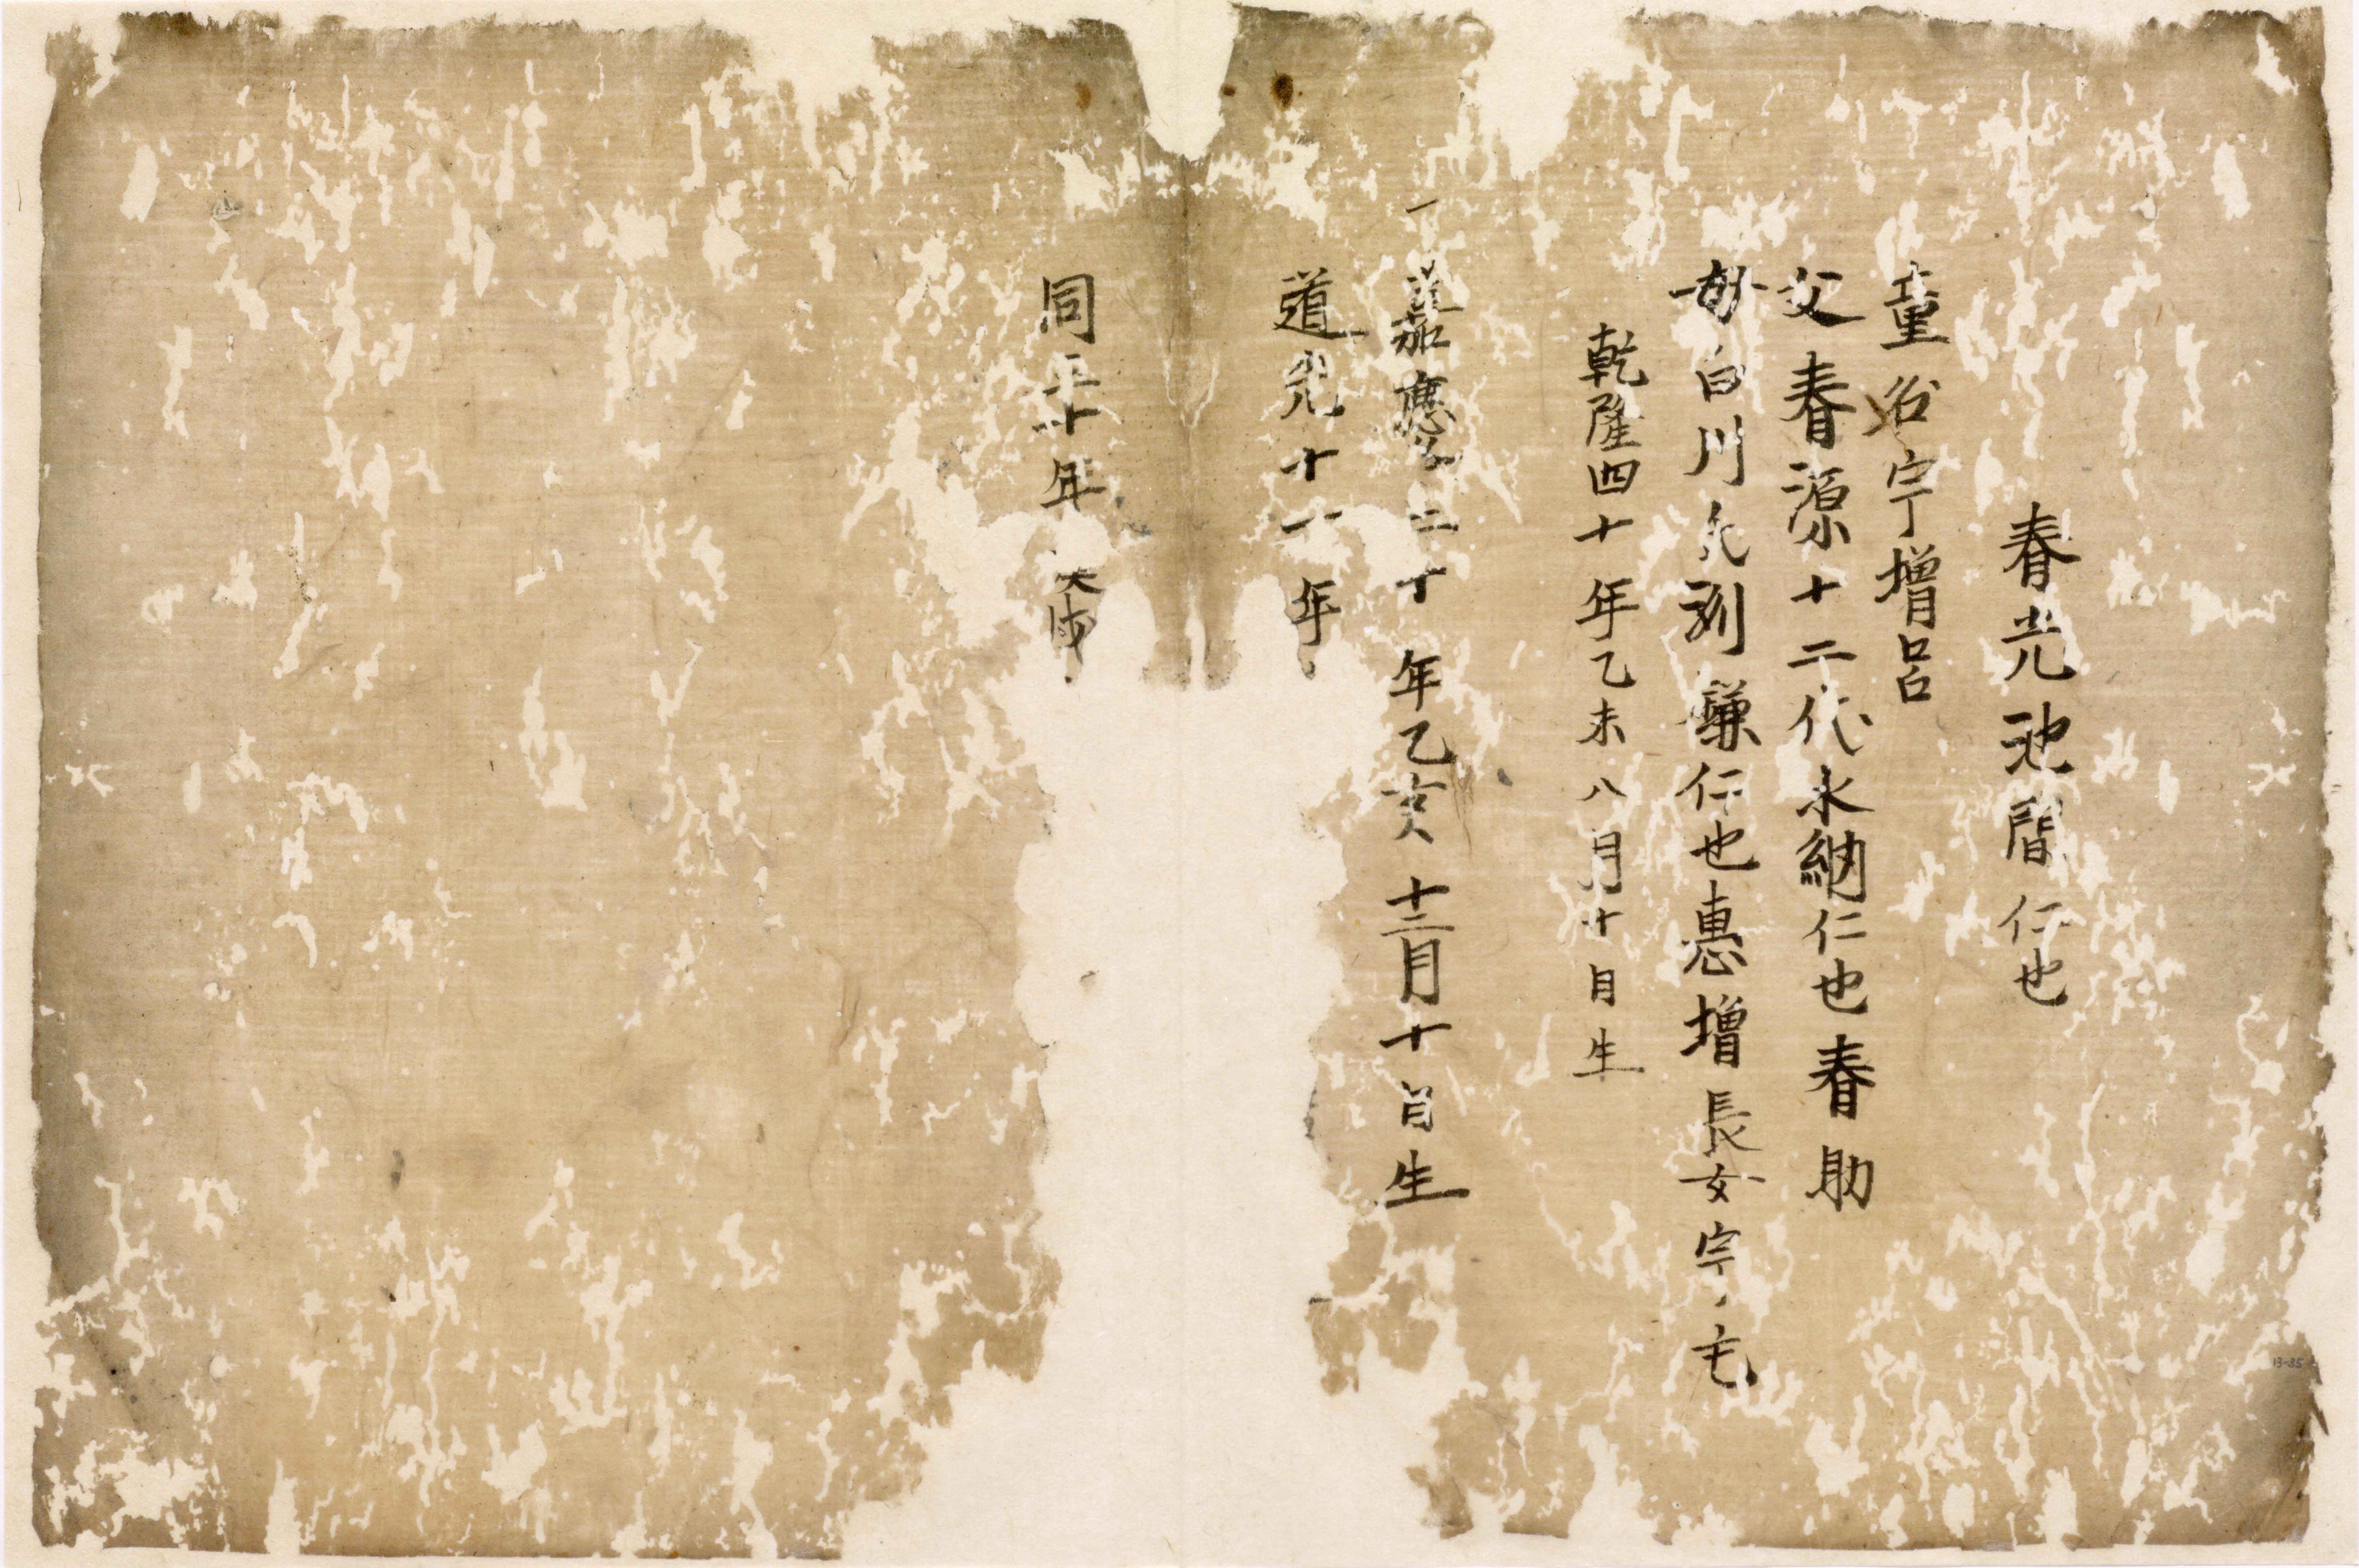 春光池間仁也
童名宇増呂
父春源十二代氷納仁也春助
母白川氏別雙仁也恵増長女宇毛
乾隆四十年乙未八月十日生
一嘉慶二十年乙亥十二月十日生
道光十一年
同十年
13-35